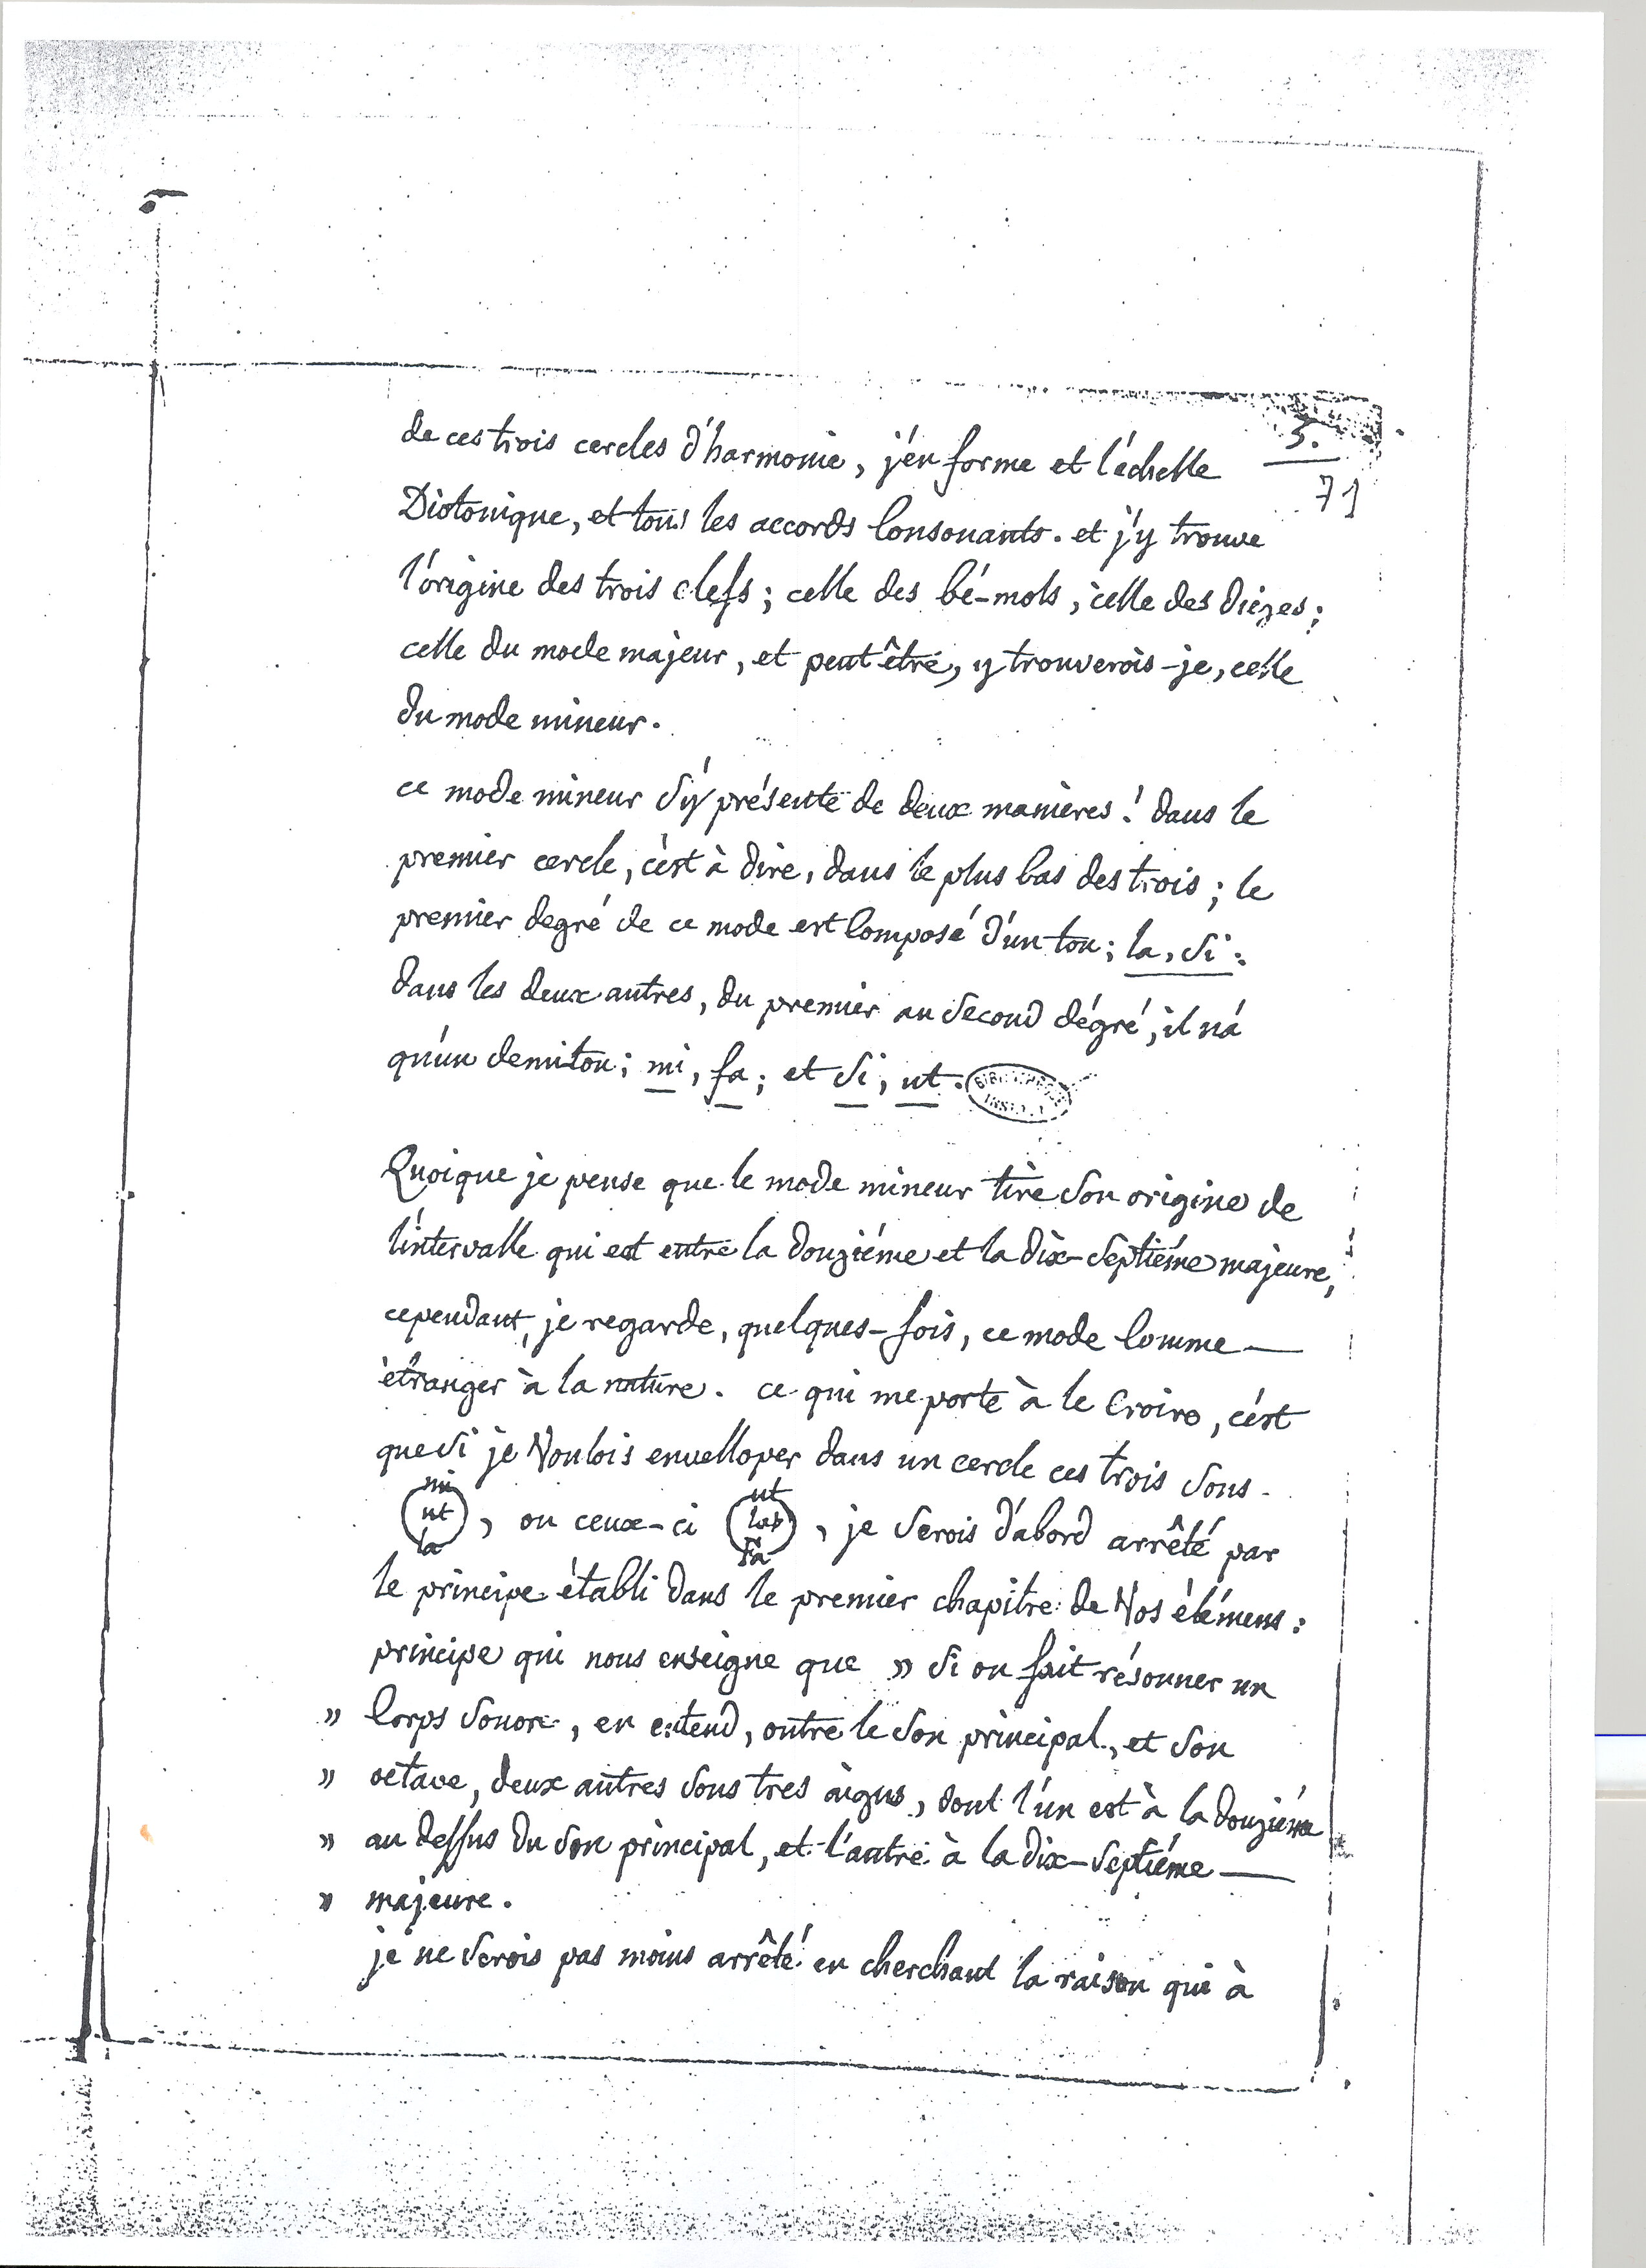 3.
71
de ces trois cercles d'harmonie, j'én forme et l'échelle
Diatonique, et tous les accords Consonants. et j'y trouve
l'origine des trois clefs; celle des bé-mols, celle des dièzes;
celle du mode majeur, et peut être, y trouverois-je, celle
du mode mineur.
ce mode mineur s'y présente de deux manières: dans le
premier cercle, c'est à dire, dans le plus bas des trois; le
premier degré de ce mode est Composé d'un ton; la, si:
dans les deux autres, du premier au second dégré, il n'a
qu'un demiton; mi, fa; et si, ut.
Quoique je pense que le mode mineur tire son origine de
l'intervalle qui est entre la douziéme et la dix-septiéme majeure,
cependant, je regarde, quelques-fois, ce mode Comme
étranger à la nature. ce qui me porte à le Croire, c'est
que si je Voulois envelloper dans un cercle ces trois sons
mi ut la, ou ceux-ci ut la♭ fa, je serois d'abord arrêté par
le principe établi dans le premier chapitre de Vos élémens:
principe qui nous enseigne que » si on fait résonner un
» Corps sonore, en entend, outre le son principal, et son
» octave, deux autres sons tres aigus, dont l'un est à la douziéme
» au dessus du son principal, et l'autre à la dix-septiéme
» majeure.
je ne serois pas moins arrêté en cherchant la raison qui à